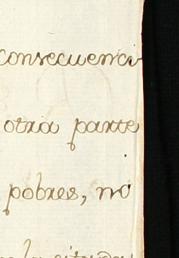 consecuencia
otra parte
pobres, no